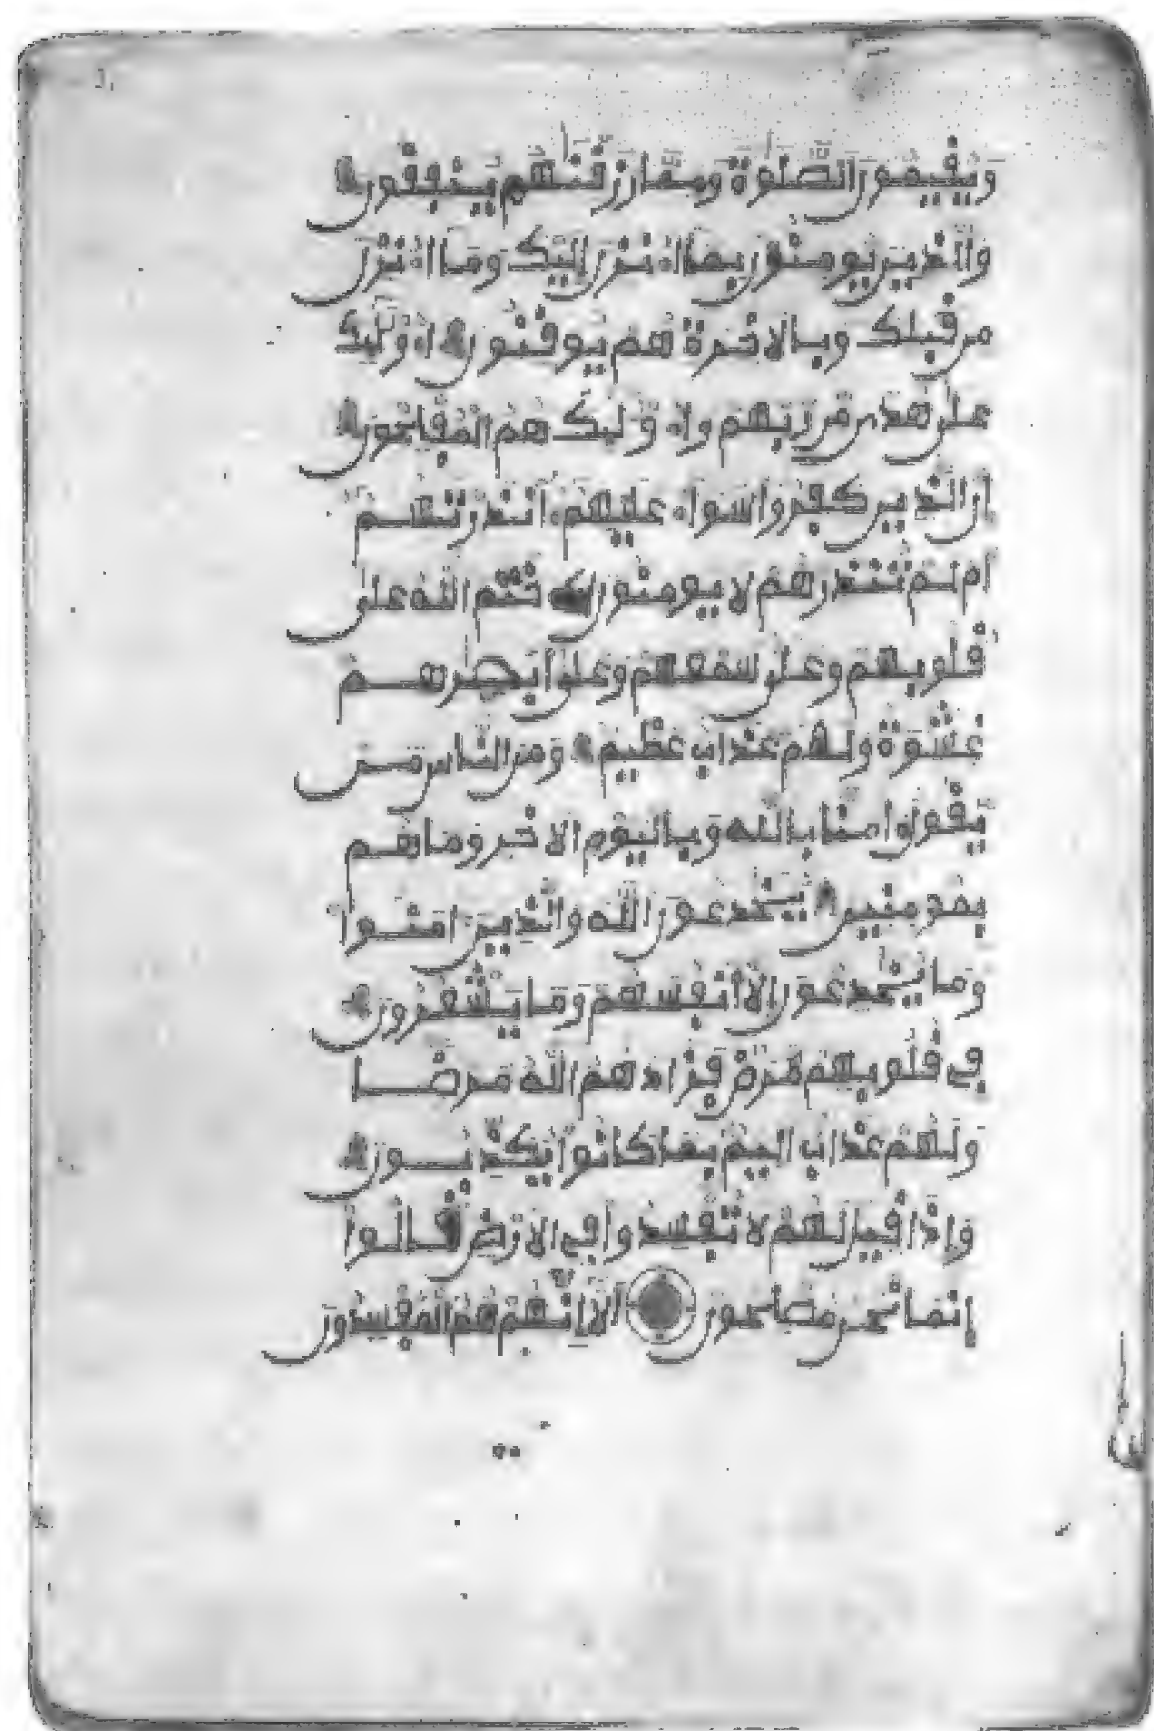 وَيُقِيمُونَ الصَّلَوٰةَ وَمِمَّا رَزَقْنَٰهُمْ يُنفِقُونَ
وَالَّذِينَ يُومِنُونَ بِمَا أُنزِلَ إِلَيْكَ وَمَا أُنزِلَ
مِن قَبْلِكَ وَبِالَاخِرَةِ هُمْ يُوقِنُونَ أُوْلَٰٓئِكَ
عَلَىٰ هُدًى مِّن رَّبِّهِمْ وَأُوْلَٰٓئِكَ هُمُ الْمُفْلِحُونَ
إِنَّ الَّذِينَ كَفَرُوا سَوَآءٌ عَلَيْهِمُ ءَآنذَرْتَهُمُ
أَمْ لَمْ تُنذِرْهُمْ لَا يُومِنُونَ خَتَمَ اللَّهُ عَلَىٰ
قُلُوبِهِمْ وَعَلَىٰ سَمْعِهِمْ وَعَلَىٰ أَبْصَٰرِهِمْ
غِشَٰوَةٌ وَلَهُمْ عَذَابٌ عَظِيمٌ وَمِنَ النَّاسِ مَن
يَّقُولُ ءَامَنَّا بِاللَّهِ وَبِالْيَوْمِ الَاخِرِ وَمَا هُم
بِمُومِنِينَ يُخَٰدِعُونَ اللَّهَ وَالَّذِينَ ءَامَنُوا
وَمَا يُخَٰدِعُونَ إِلَّا أَنفُسَهُمْ وَمَا يَشْعُرُونَ
فِي قُلُوبِهِم مَّرَضٌ فَزَادَهُمُ اللَّهُ مَرَضًا
وَلَهُمْ عَذَابٌ اَلِيمٌ بِمَا كَانُوا يُكَذِّبُونَ
وَإِذَا قِيلَ لَهُمْ لَا تُفْسِدُوا فِي الَارْضِ قَالُوا
إِنَّمَا نَحْنُ مُصْلِحُونَ أَلَا إِنَّهُمْ هُمُ الْمُفْسِدُونَ